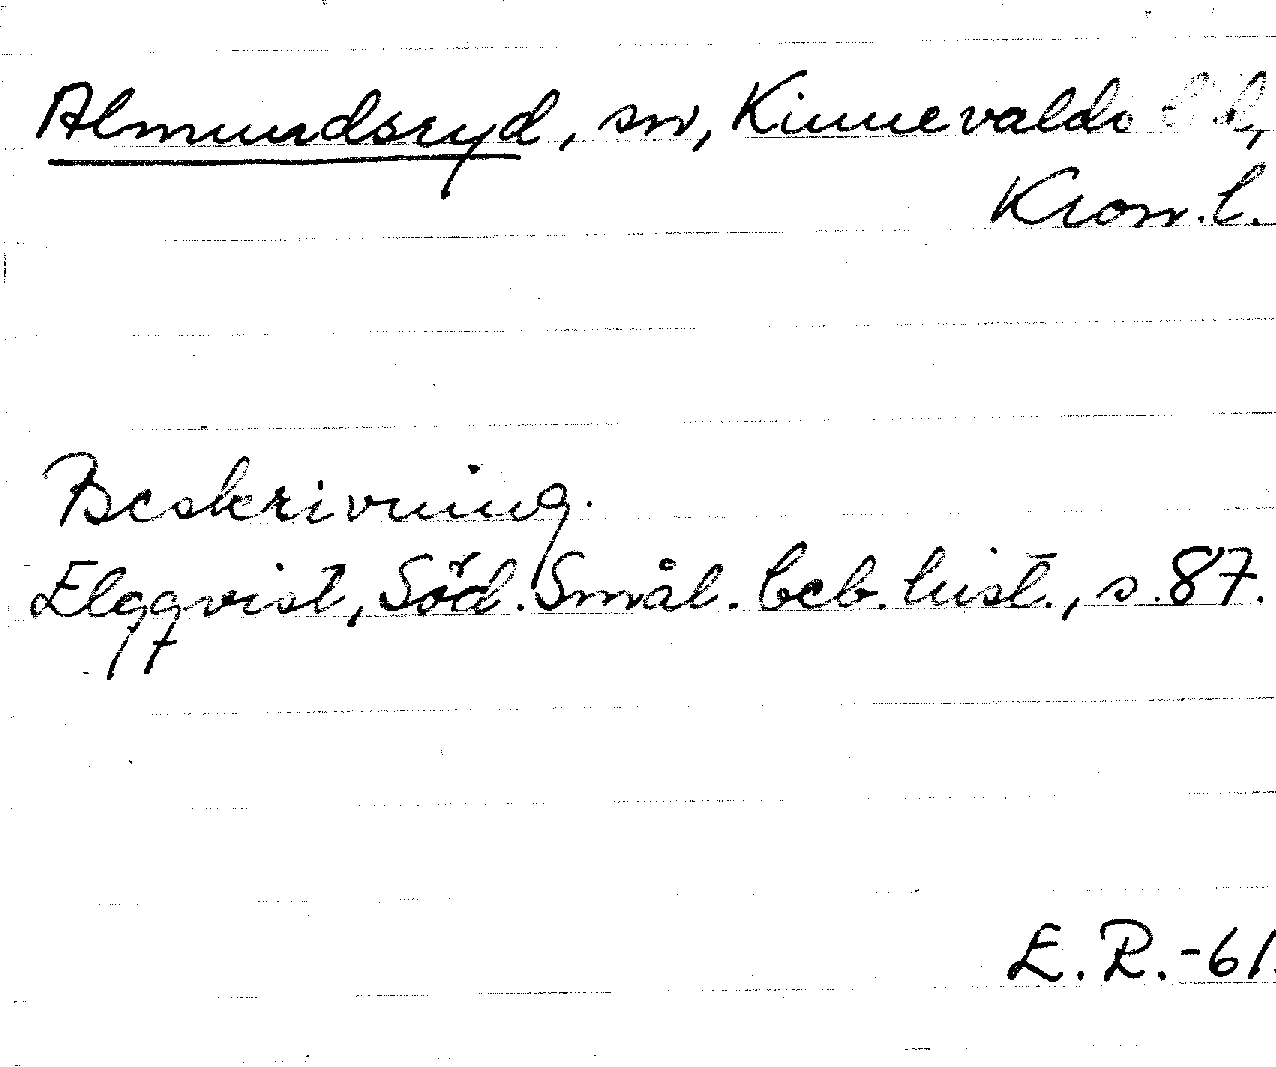 Almundsryd, sn, Kinnevalds hd,
Kron.l.
Beskrivning.
Elgqvist, Söd. Smål. beb. hist., s. 87.
E.R.-61.